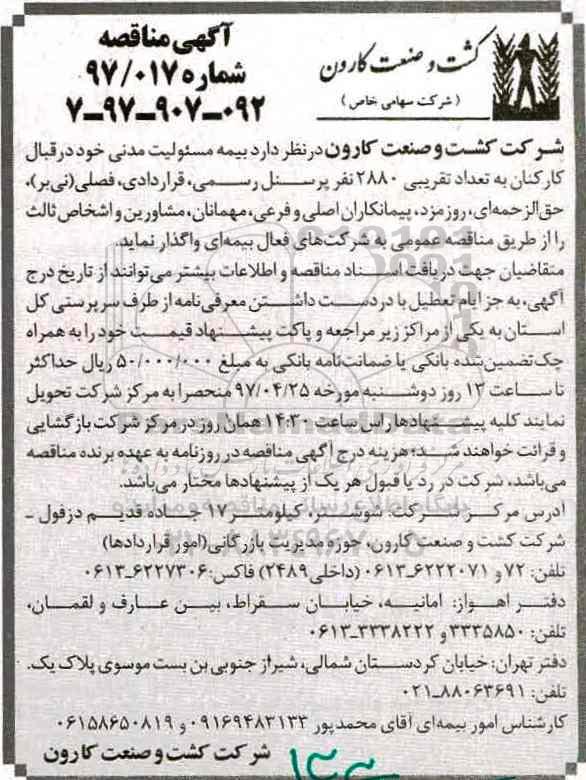 کشت و صنعت کارون
( شرکت سهامی خاص )
آگهی مناقصه
شماره ۹۷/۰۱۷
۷-۹۷-۹۰۷-۰۹۲
شرکت کشت و صنعت کارون در نظر دارد بیمه مسئولیت مدنی خود در قبال
کارکنان به تعداد تقریبی ۲۸۸۰ نفر پرسنل رسمی، قراردادی، فصلی(نی‌بر)،
حق‌الزحمه‌ای، روزمزد، پیمانکاران اصلی و فرعی، مهمانان، مشاورین و اشخاص ثالث
را از طریق مناقصه عمومی به شرکت‌های فعال بیمه‌ای واگذار نماید.
متقاضیان جهت دریافت اسناد مناقصه و اطلاعات بیشتر می‌توانند از تاریخ درج
آگهی، به جز ایام تعطیل با در دست داشتن معرفی‌نامه از طرف سرپرستی کل
استان به یکی از مراکز زیر مراجعه و پاکت پیشنهاد قیمت خود را به همراه
چک تضمین‌شده بانکی یا ضمانت‌نامه بانکی به مبلغ ۵۰/۰۰۰/۰۰۰ ریال حداکثر
تا ساعت ۱۲ روز دوشنبه مورخه ۹۷/۰۴/۲۵ منحصرا به مرکز شرکت تحویل
نمایند کلیه پیشنهادها راس ساعت ۱۴:۳۰ همان روز در مرکز شرکت بازگشایی
و قرائت خواهند شد؛ هزینه درج آگهی مناقصه در روزنامه به عهده برنده مناقصه
می‌باشد، شرکت در رد یا قبول هر یک از پیشنهادها مختار می‌باشد.
آدرس مرکز شرکت: شوشتر، کیلومتر ۱۷ جاده قدیم دزفول -
شرکت کشت و صنعت کارون، حوزه مدیریت بازرگانی(امور قراردادها)
تلفن: ۷۲ و ۶۲۲۲۰۷۱-۰۶۱۳ (داخلی ۲۴۸۹) فاکس: ۶۲۲۷۳۰۶-۰۶۱۳
دفتر اهواز: امانیه، خیابان سقراط، بین عارف و لقمان،
تلفن: ۳۳۳۵۸۵۰ و ۳۳۳۸۲۲۲-۰۶۱۳
دفتر تهران: خیابان کردستان شمالی، شیراز جنوبی بن بست موسوی پلاک یک.
تلفن: ۸۸۰۶۳۶۹۱-۰۲۱
کارشناس امور بیمه‌ای آقای محمدپور ۰۹۱۶۹۴۸۳۱۳۳ و ۰۶۱۵۸۶۵۰۸۱۹
شرکت کشت و صنعت کارون